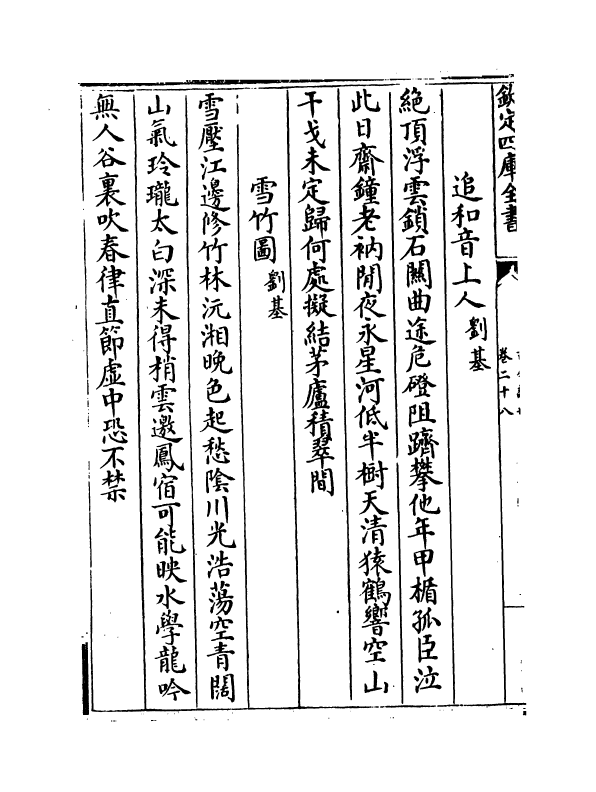 欽定四庫全書
卷二十八
追和音上人 劉基
絶頂浮雲鎖石關曲途危磴阻躋攀他年甲楯孤臣泣
此日齋鐘老衲閒夜永星河低半樹天清猿鶴響空山
干戈未定歸何處擬結茅廬積翠間
雪竹圖 劉基
雪壓江邊修竹林沅湘晚色起愁隂川光浩蕩空青闊
山氣玲瓏太白深未得梢雲邀鳳宿可能映水學龍吟
無人谷裏吹春律直節虛中恐不禁